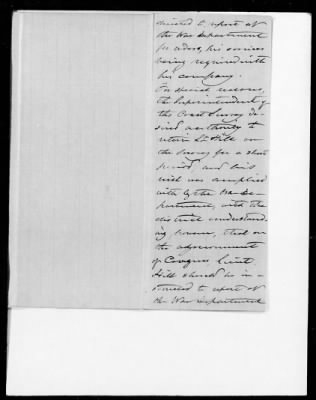 directed to report at
the War Department
for orders, his services
being required with
his company.
For special reasons,
the Superintendent of
the Coast Survey de-
sired authority to
retain Lt. Hill on
the Survey for a short
period, and said
wish was complied
with by the War De-
partment, with the
distinct understand-
ing however, that on
the adjournment
of Congress Lieut.
Hill should be in-
structed to report at
the War Department